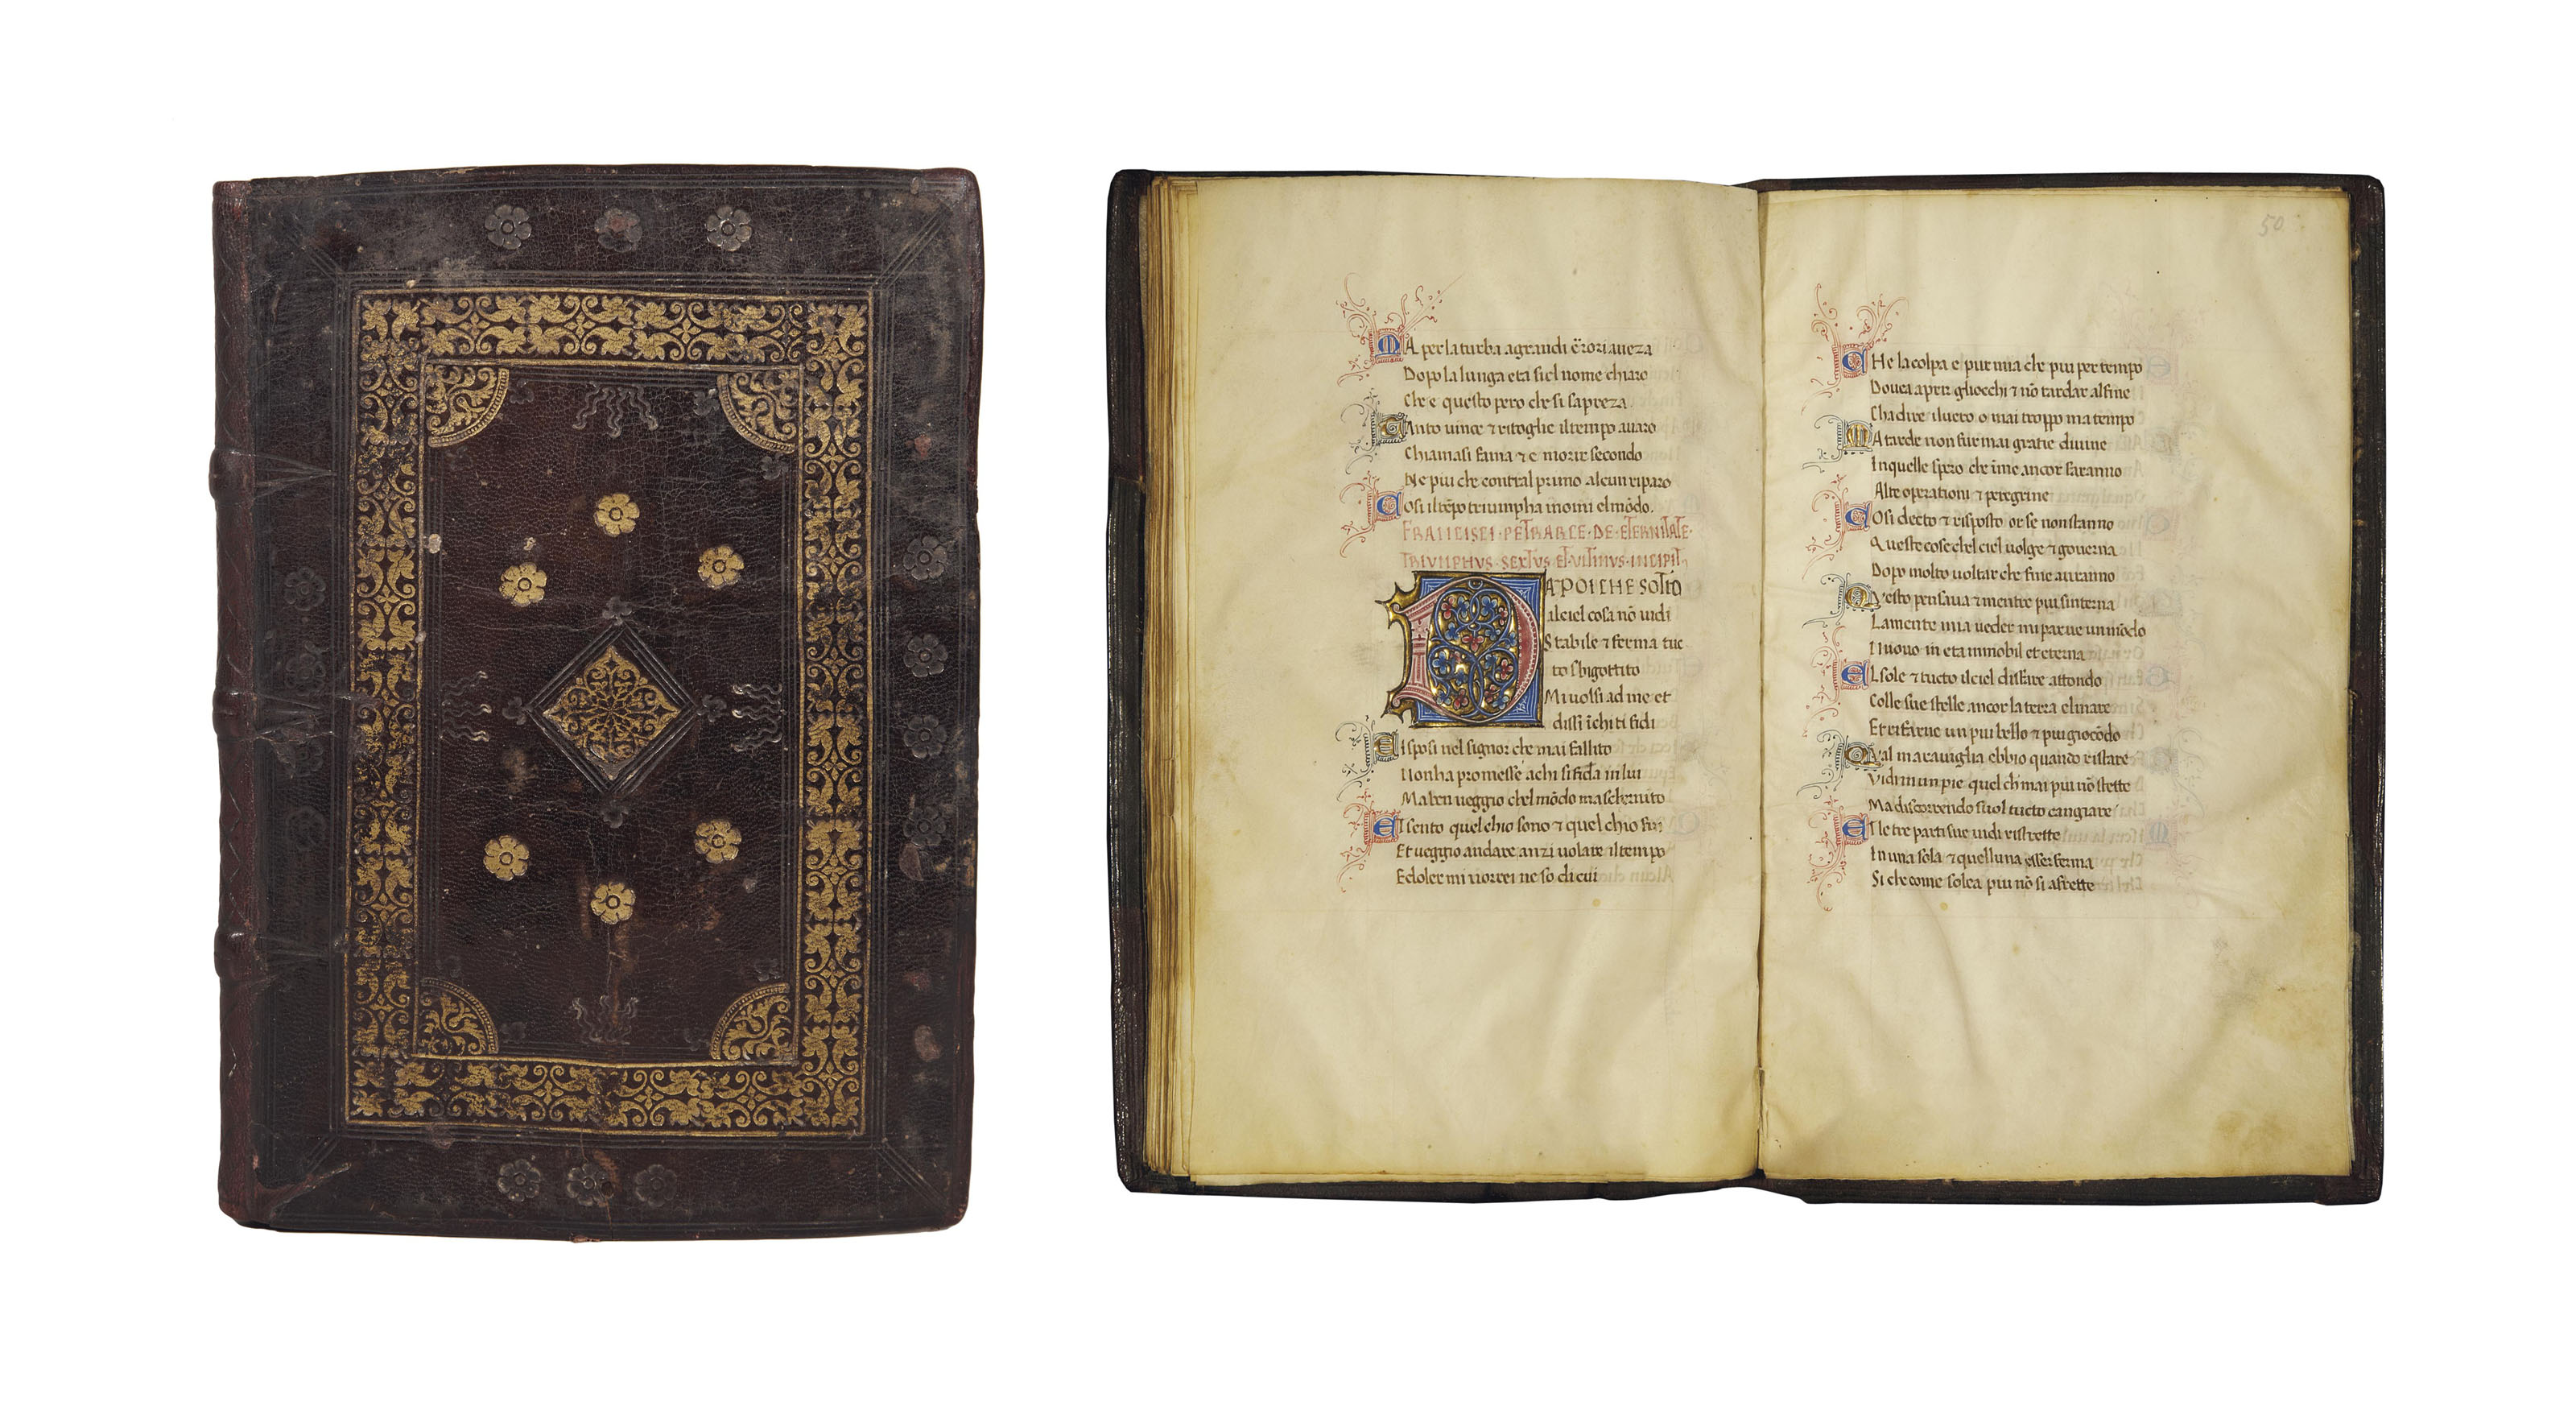 MA per la turba a grandi erori aueza
Dopo la lunga eta siel nome chiaro
Che e questo pero che si sapreza
Tanto uince ⁊ ritoglie iltempo auaro
Chiamasi fama ⁊ e morir secondo
Ne piu che contral primo alcun riparo
Cosi iltēpo triumpha inomi elmōdo.
FRANCISCI·PETRARCE·DE·ETERNITATE·
TRIVMPHVS·SEXTVS·ET·VLTIMVS·INCIPIT
DA POI CHE SOTTO
alciel cosa nō uidi
Stabile ⁊ ferma tuc
to sbigottito
Mi uolsi ad me et
dissi īchi ti fidi
Risposi nel signor che mai fallito
Non ha promesse achi si fida in lui
Ma ben ueggio chel mōdo ma schernito
E Isento quel chio sono ⁊ quel chio fui
Et ueggio andare anzi uolare iltempo
E doler mi uorrei ne so di cui
50
CHe la colpa e pur mia che piu per tempo
Douea aprir gliocchi ⁊ nō tardar alfine
Cha dire iluero o mai troppo ma tempo
MA tarde non fur mai gratie diuine
In quelle spero che īme ancor faranno
Alte operationi ⁊ peregrine
COsi decto ⁊ risposto or se non stanno
Queste cose chel ciel uolge ⁊ gouerna
Dopo molto uoltar che fine auranno
QVesto pensaua ⁊ mentre piu sinterna
La mente mia ueder mi parue un mōdo
Nuouo in eta immobil et eterna
EL sole ⁊ tucto ilciel disfare attondo
Colle sue stelle ancor la terra elmare
Et rifarne un piu bello ⁊ piu giocōdo
QVal marauiglia ebbio quando ristare
Vidi in un pie quel ch mai piu nō stette
Ma discorrendo suol tucto cangiare
E lle tre parti sue uidi ristrette
In una sola ⁊ quelluna esser ferma
Si che come solea piu nō si afrette